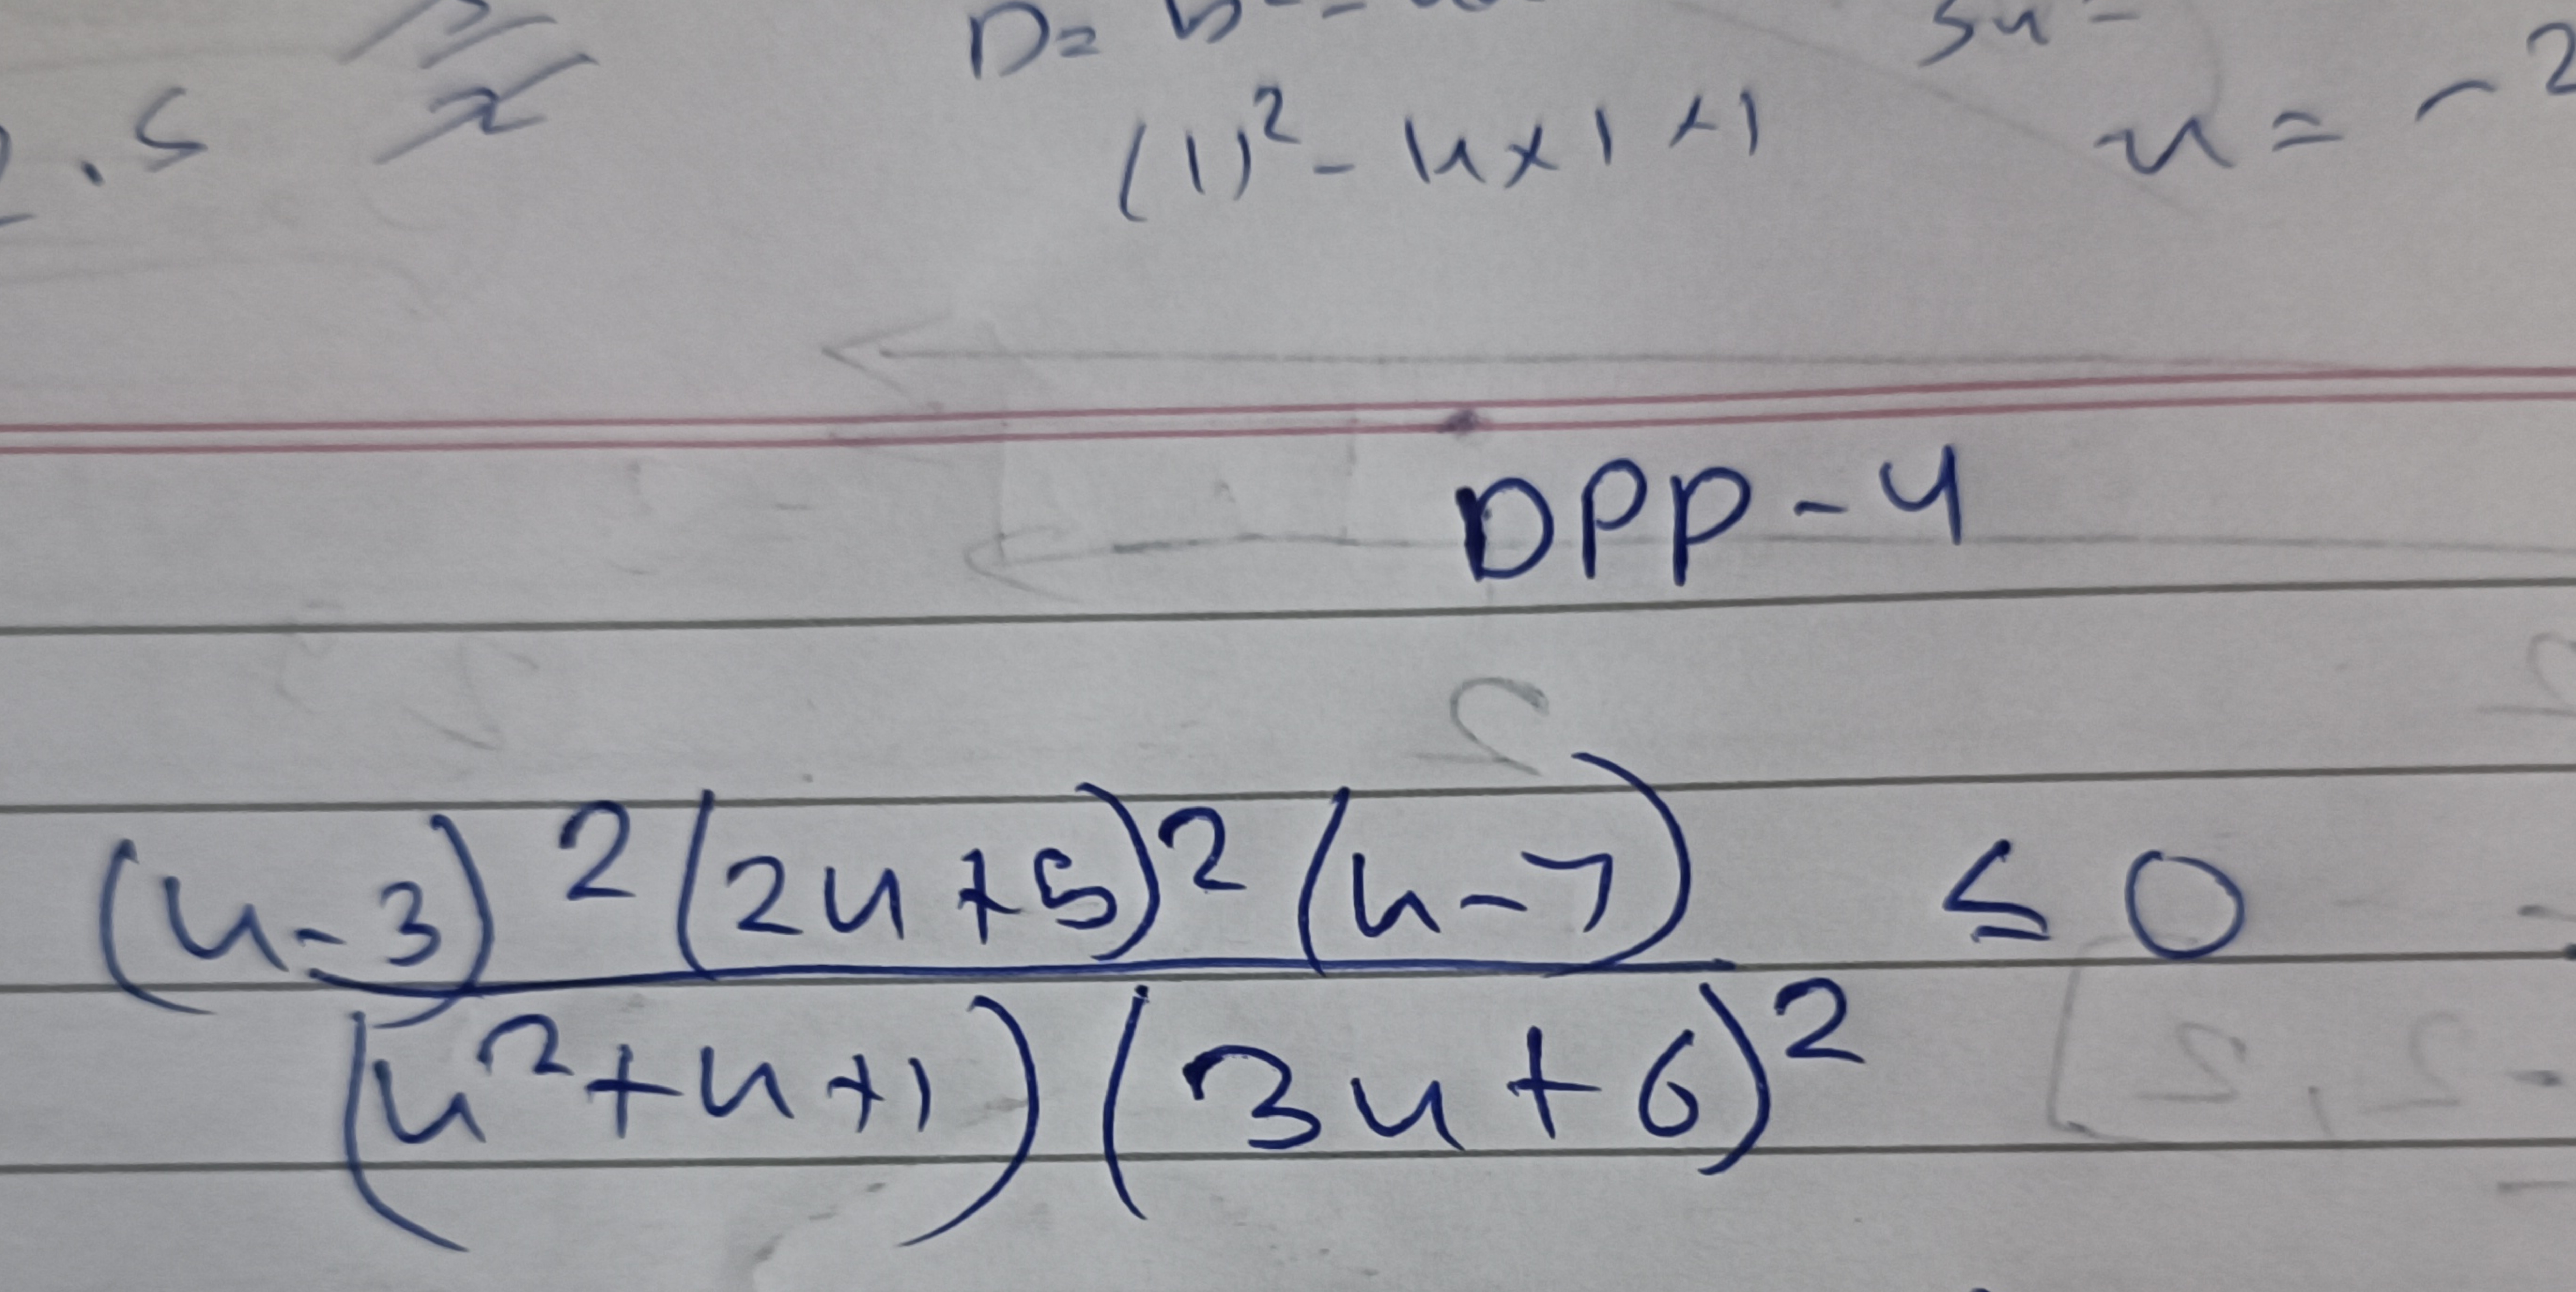 .5
x
D=
(1)² - 4x1x1
3x =
x = -2
DPP-4
(x-3)²(2x+5)²(x-7) ≤ 0
(x²+x+1)(3x+6)²